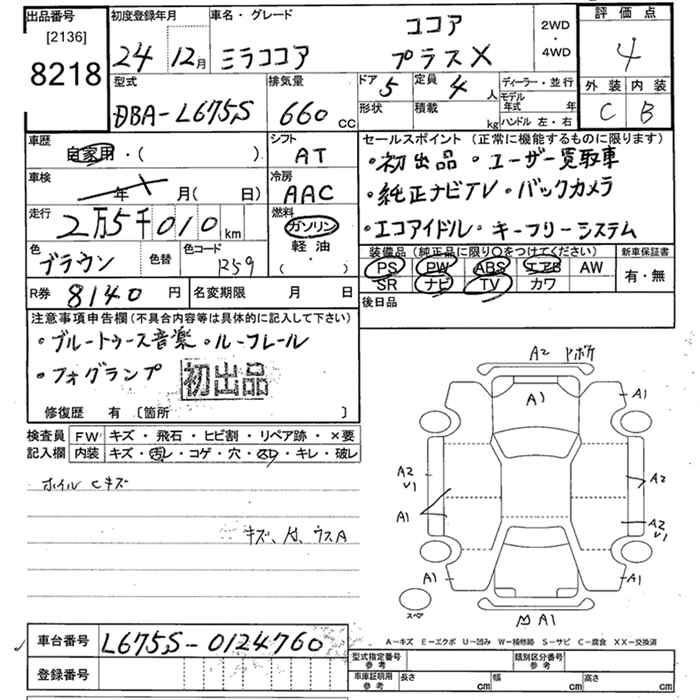 出品番号
[2136]
8218
初度登録年月
24 12月
車名・グレード
ミラココア
ココア
プラスX
2WD
・
4WD
評価点
4
外装 内装
C B
型式
DBA-L675S
排気量
660 cc
ドア 5 定員 4 人
形状 積載 kg
ディーラー・並行
モデル年式 年
ハンドル 左・右
車歴
自家用・( )
シフト
AT
セールスポイント (正常に機能するものに限ります)
・初出品 ・ユーザー買取車
・純正ナビTV・バックカメラ
・エコアイドル・キーフリーシステム
車検
年 月( 日)
冷房
AAC
走行
2万5千010 km
燃料
ガソリン
軽油
( ・ )
色
ブラウン
色替
色コード
R59
装備品 (純正品に限り○をつけてください)
PS PW ABS エアB AW
SR ナビ TV カワ
新車保証書
有・無
R券 8140 円
名変期限 月 日
後日品
注意事項申告欄(不具合内容等は具体的に記入して下さい)
・ブルートゥース音楽・ルーフレール
・フォグランプ
初出品
修復歴 有 〔箇所 〕
検査員記入欄
FW キズ・飛石・ヒビ割・リペア跡・×要
内装 キズ・汚レ・コゲ・穴・スレ・キレ・破レ
ホイル Cキズ
キズ、ウスA
A2
A1
A1
A2
V1
A1
A2
A2
V1
A1
A1
A1
スペア
A－キズ E－エクボ U－凹み W－補修跡 S－サビ C－腐食 XX－交換済
車台番号 L675S-0124760
登録番号
型式指定番号
参考
類別区分番号
参考
車庫証明用
参考
長さ cm 幅 cm 高さ cm